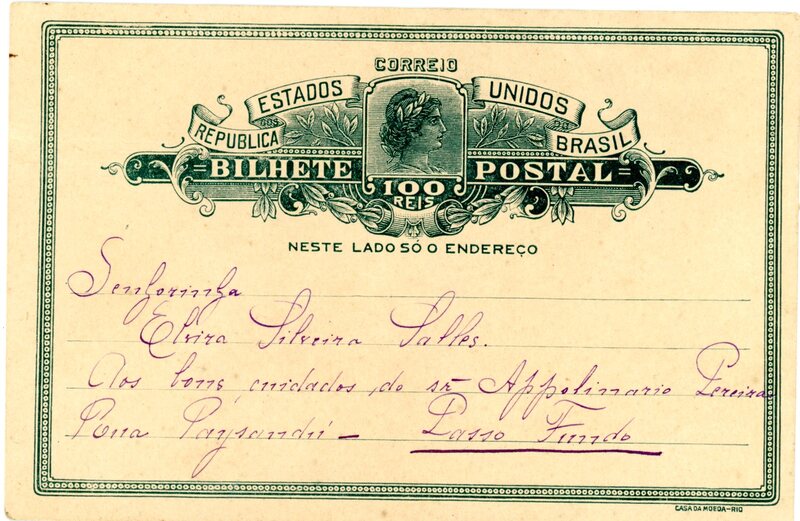 CORREIO
ESTADOS UNIDOS
REPUBLICA BRASIL
=BILHETE POSTAL=
100
REIS
NESTE LADO SÓ O ENDEREÇO
Senhorinha
Elvira Silveira Salles.
Aos bons cuidados do sr. Appolinario Pereira
Rua Paysandú — Passo Fundo
CASA DA MOEDA-RIO